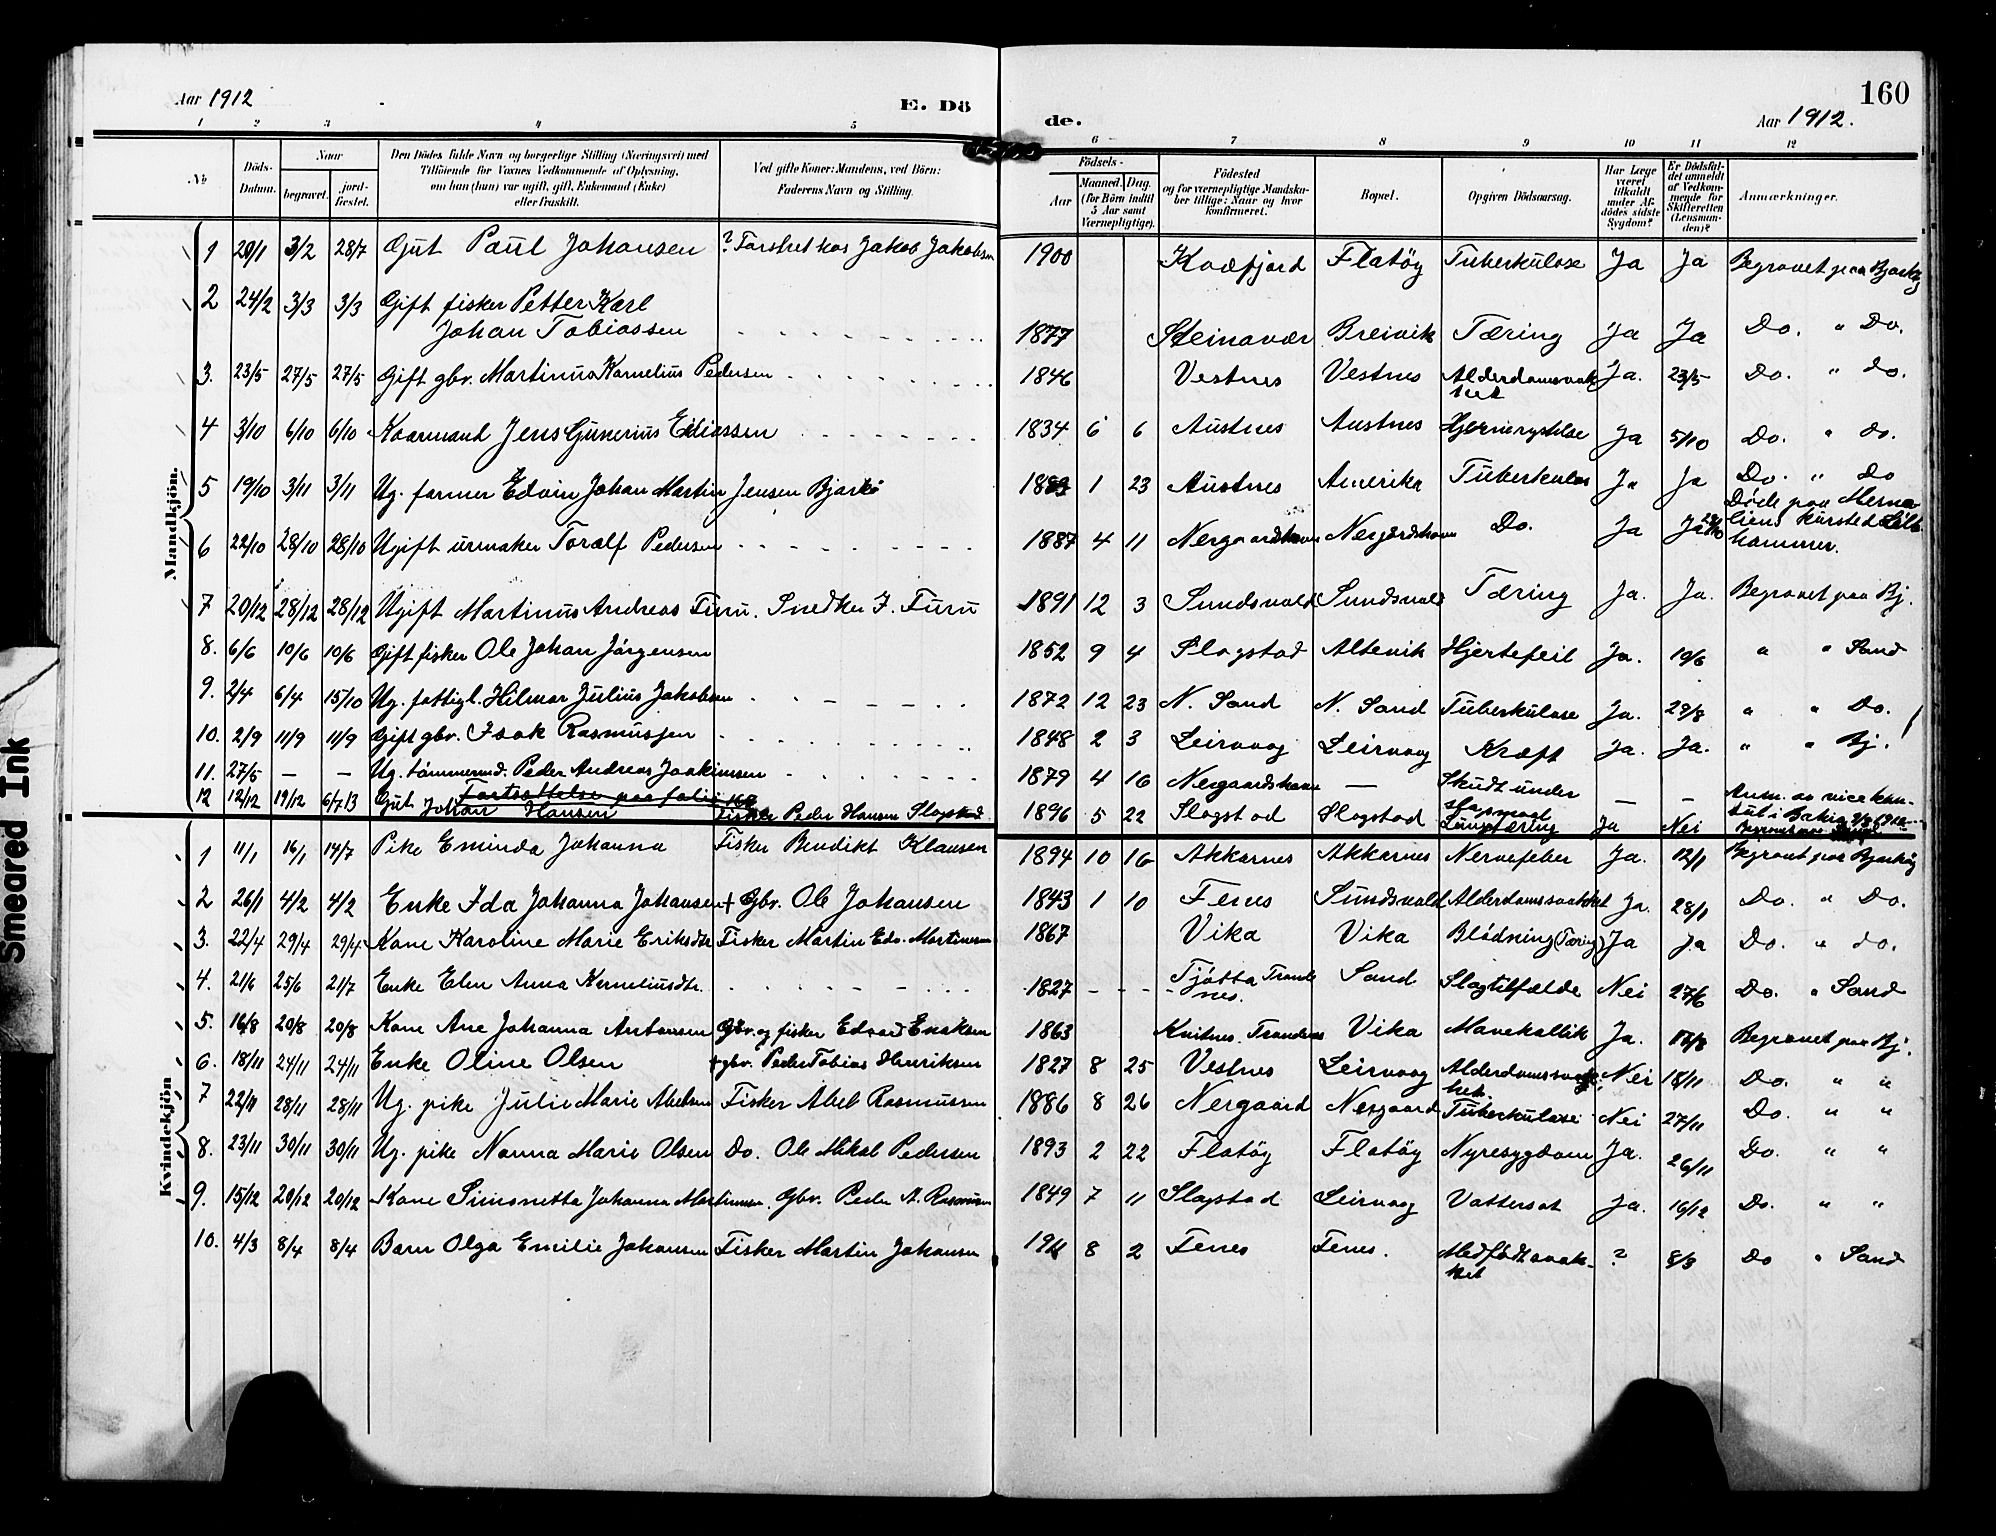 160
Aar 1912 E. Dö
de. Aar 1912.
1 2 3 4 5 6 7 8 9 10 11 12
No Döds-Datum. Naar begravet. jord-fæstet. Den Dödes fulde Navn og borgerlige Stilling (Næringsvei) med Tilföiende for Voxnes Vedkommende af Oplysning, om han (hun) var ugift, gift, Enkemand (Enke) eller fraskilt. Ved gifte Koner: Mandens, ved Börn: Faderens Navn og Stilling. Födsels- Aar Maaned. Dag. (for Börn indtil 5 Aar samt Værnepligtige). Födested og for værnepligtige Mandskaber tillige: Naar og hvor konfirmeret. Bopæl. Opgiven Dödsaarsag. Har Læge været tilkaldt under Afdödes sidste Sygdom? Er Dödsfaldet anmeldt af Vedkommende for Skifteretten (Lensmanden)? Anmærkninger.
Mandkjön.
1 20/1 3/2 28/7 Gut Paul Johansen ? Forsbet hos Jakob Jakobsen 1900 Kvæfjord Flatöy Tuberkulose Ja Ja Begravet paa Bjarköy
2 24/2 3/3 3/3 Gift fisker Petter Karl
Johan Tobiassen 1877 Steinavær Breivik Tæring Ja Ja Do. " Do.
3. 23/5 27/5 27/5 Gift gbr. Martinus Kornelius Pedersen 1846 Vestnes Vestnes Alderdomsvak
het Ja. 23/5 Do. " do.
4 3/10 6/10 6/10 Kaarmand Jens Gunerius Eliassen 1834 6 6 Austnes Austnes Hjernerystelse Ja 5/10 Do. " do.
5 19/10 3/11 3/11 Ug. farmer Edvin Johan Martin Jensen Bjarkö 1 23 Austnes Amerika Tuberkulos Ja Ja Do. " Do
Döde paa Mesna
liens kursted Lille
hammer.
6 22/10 28/10 28/10 Ugift urmaker Toralf Pedersen 1887 4 11 Nergaardshavn Nergårdshavn Do. Ja Ja
7 20/12 28/12 28/12 Ugift Martinus Andreas Furu. Snedker J. Furu 1891 12 3 Sundsvald Sundsvald Tæring Ja. Ja. Begravet paa Bj.
8. 6/6 10/6 10/6 Gift fisker Ole Johan Jörgensen 1852 9 4 Slagstad Altevik Hjertefeil Ja. 19/6 " " Sand
9. 2/4 6/4 15/10 Ug. fattigl. Hilmar Julius Jakobsen 1872 12 23 N. Sand N. Sand Tuberkulose Ja. 29/8 " " Do.
10. 2/9 11/9 11/9 Gift gbr. Isak Rasmussen 1848 2 3 Leirvaag Leirvaag Kræft Ja. Ja. " " Bj.
11. 27/5 — — Ug. tömmermd. Peder Andreas Joakimsen 1879 4 16 Nergaardshavn — Skudt under
slagsmaal — — Anm. av vicekon-
sul i Bahia
Fortsættelse paa folio 160
12 12/12 19/12 6/7 13 Gut Johan Hansen Fisker Peder Hansen Slagstad 1896 5 22 Slagstad Slagstad Lungetæring Ja Nei
Kvindekjön
1 11/1 16/1 14/7 Pike Eminda Johanna Fisker Bendikt Klausen 1894 10 16 Akkarnes Akkarnes Nervefeber Ja. 12/1 Begravet paa Bjarköy
2 26/1 4/2 4/2 Enke Ida Johanna Johansen + Gbr. Ole Johansen 1843 1 10 Fenes Sundsvald Alderdomssvakhet Ja. 28/1 Do. " Do.
3. 22/4 29/4 29/4 Kone Karoline Marie Eriksdtr Fisker Martin Edv. Martinsen 1867 Vika Vika Blödning (Tæring) Ja Ja Do. " do.
4. 21/6 25/6 21/7 Enke Elen Anna Korneliusdtr. 1827 - - Tjötta Tronde
nes. Sand Slagtilfælde Nei 27/6 Do. " Sand
5. 16/8 20/8 20/8 Kone Ane Johanna Antonsen Gbr. og fisker Edvard Enoksen 1863 Kvitnes. Trondenes Vika Mavekollik Ja. 17/8 Begravet paa Bj.
6. 18/11 24/11 24/11 Enke Oline Olsen + gbr. Peder Tobias Henriksen 1827 8 25 Vestnes Leirvaag Alderdomssvag
het. Nei 18/11 Do. " "
7 22/11 28/11 28/11 Ug. pike Julie Marie Abelsen Fisker Abel Rasmussen 1886 8 26 Nergaard Nergaard Tuberkulose Nei 27/11 Do. " "
8. 23/11 30/11 30/11 Ug. pike Nanna Marie Olsen Do. Ole Mikal Pedersen 1893 2 22 Flatöy Flatöy Nyresygdom Ja. 26/11 Do. " "
9. 15/12 20/12 20/12 Kone Simonetta Johanna Martinsen. Gbr. Peder A. Rasmussen 1849 7 11 Slagstad Leirvaag Vattersot Ja. 16/12 Do. " "
10. 4/3 8/4 8/4 Barn Olga Emilie Johansen Fisker Martin Johansen 1911 8 2 Fenes Fenes. Medfödt svak-
het ? 8/3 Do " Sand
Smeared Ink